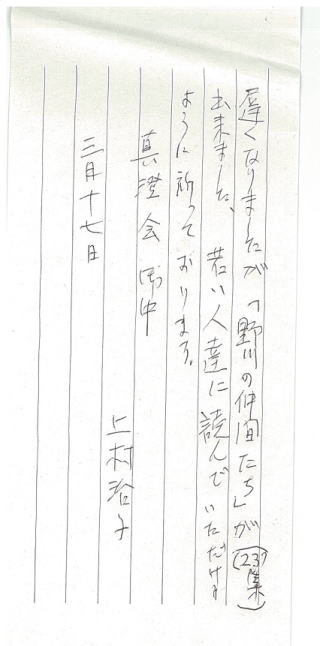 遅くなりましたが「野川の仲間たち」が(23集)
出来ました、若い人達に読んでいただける
ように祈っております。
真澄会 御中
三月十七日
上村治子